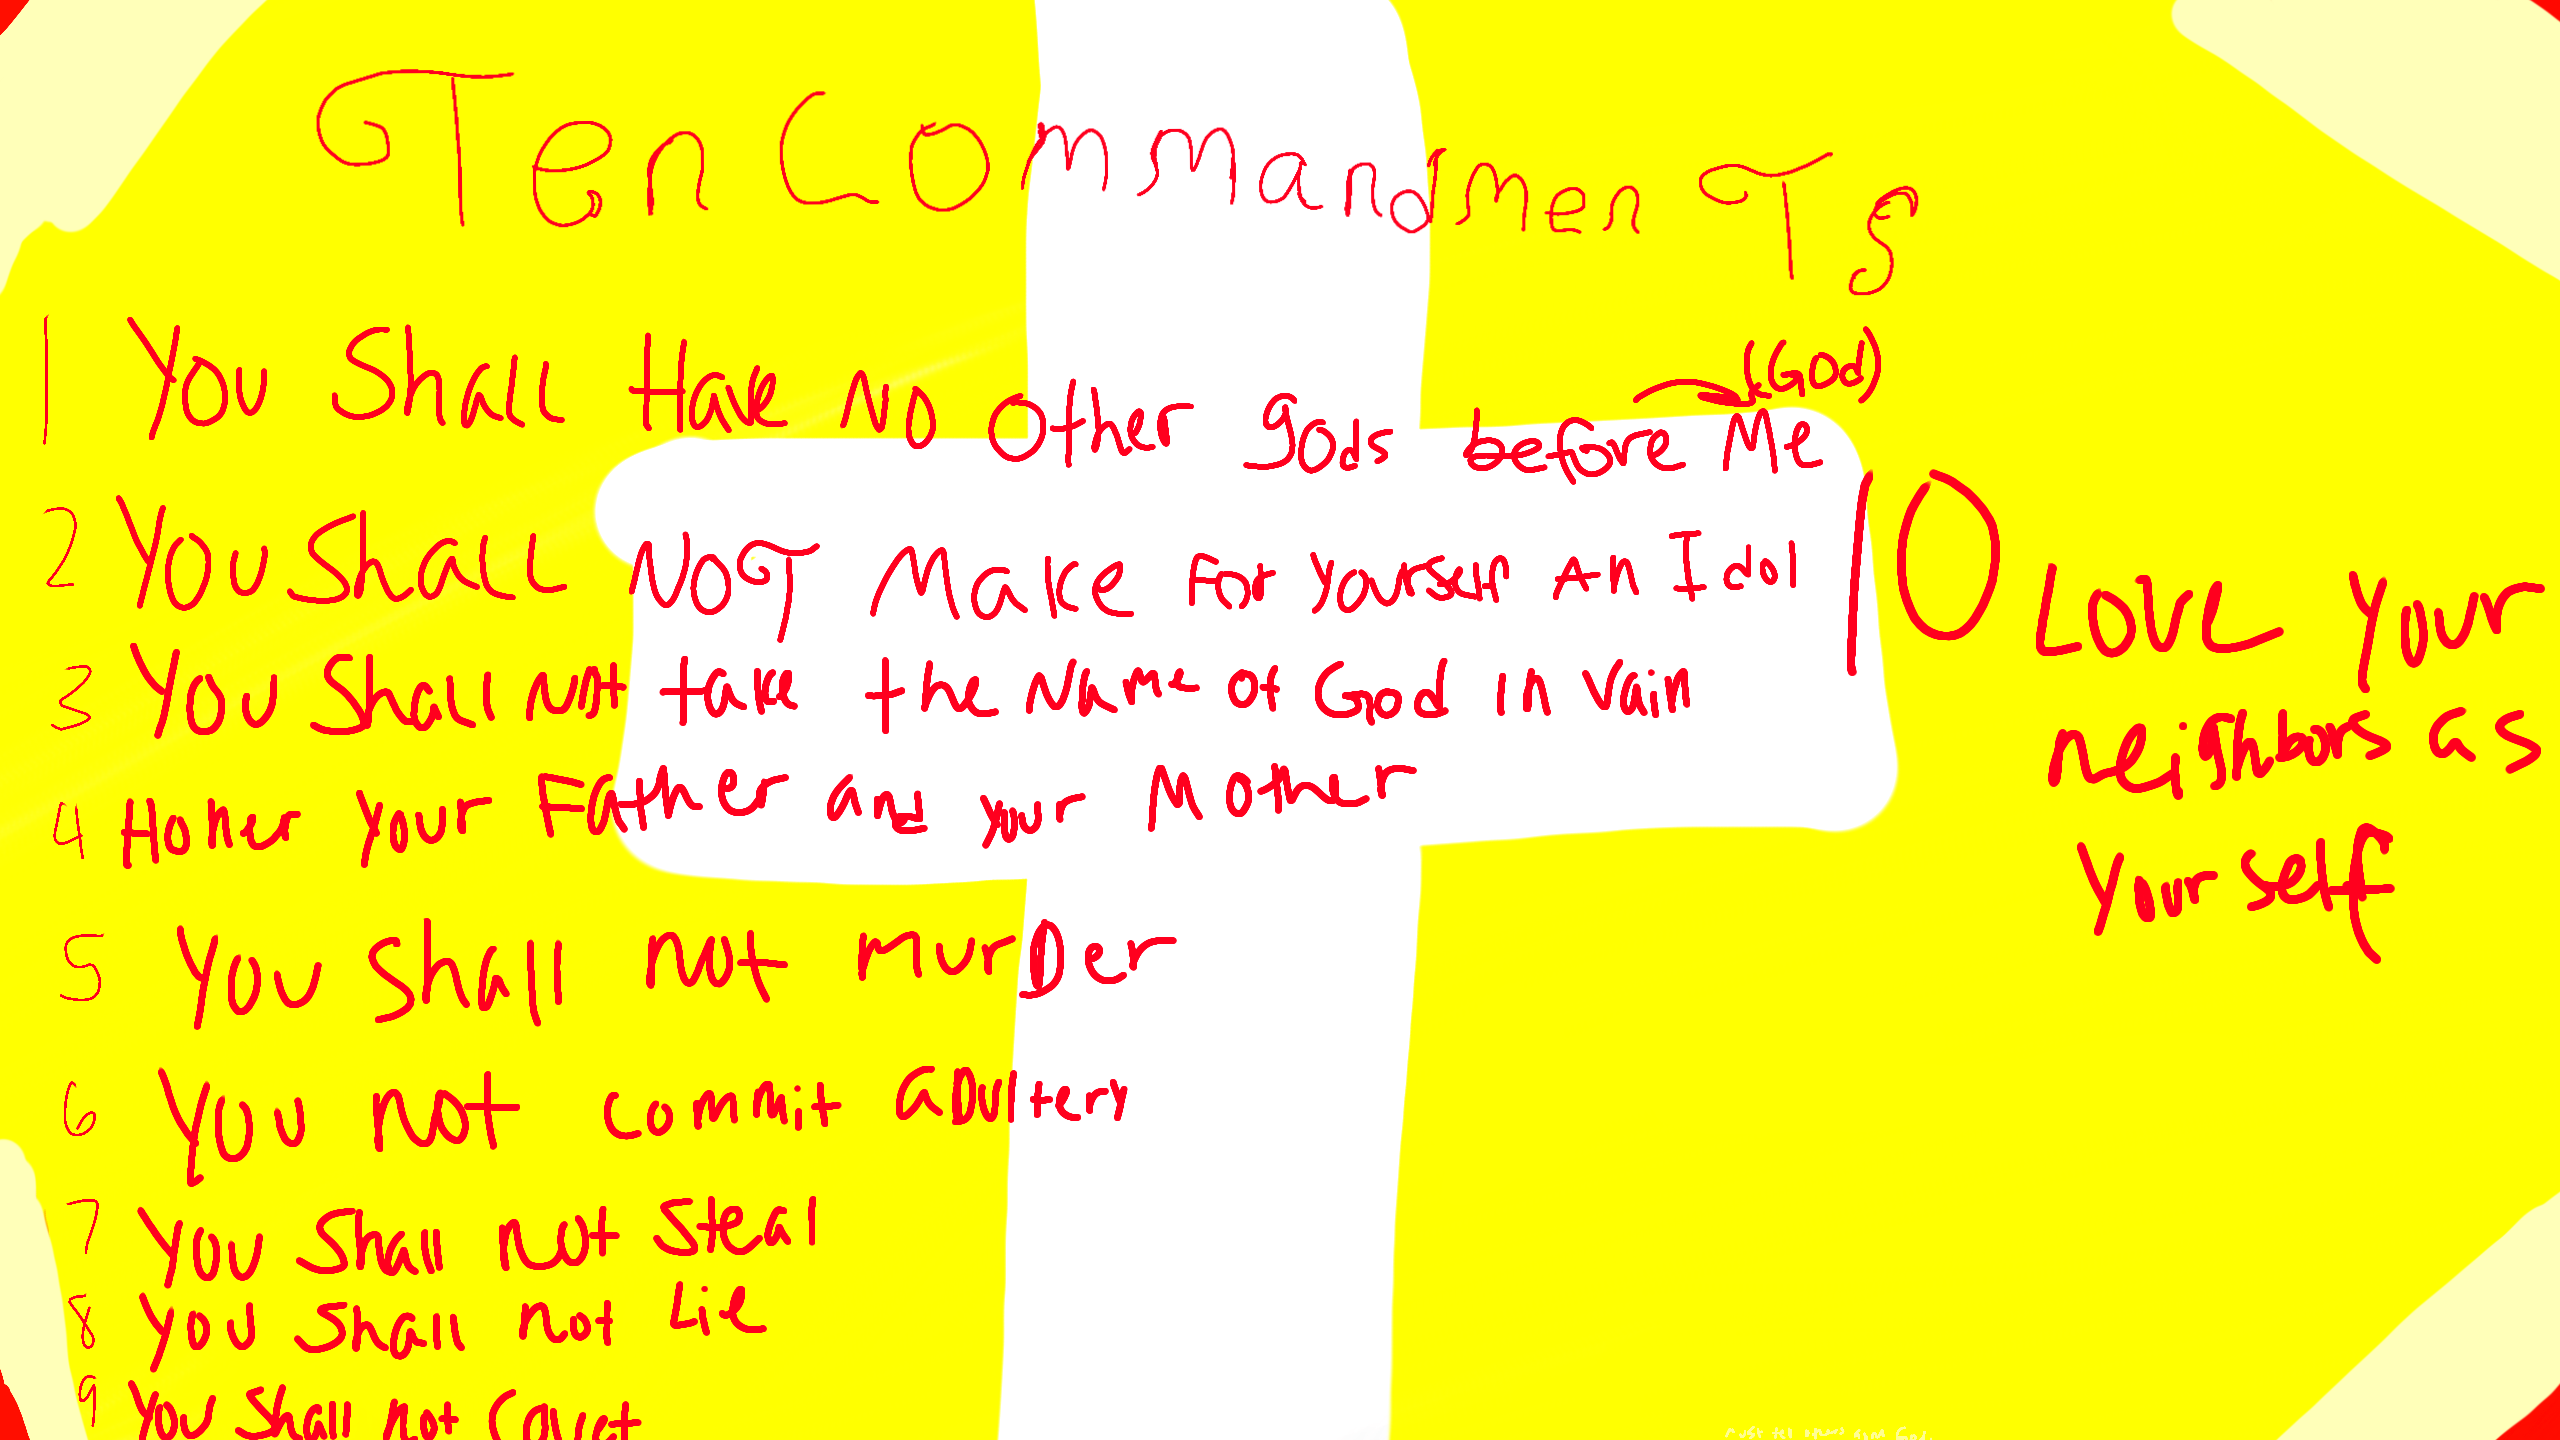 Ten CommandmenTs
(God)
1 You Shall Have No Other gods before Me
2 You Shall NOT Make For Yourself An Idol
3 You Shall Not take the Name of God in Vain
4 Honer Your Father and your Mother
5 You Shall not MurDer
6 You not commit aDultery
7 You Shall not Steal
8 You Shall not Lie
9 You Shall not Covet
10 Love Your
neighbors as
Your self